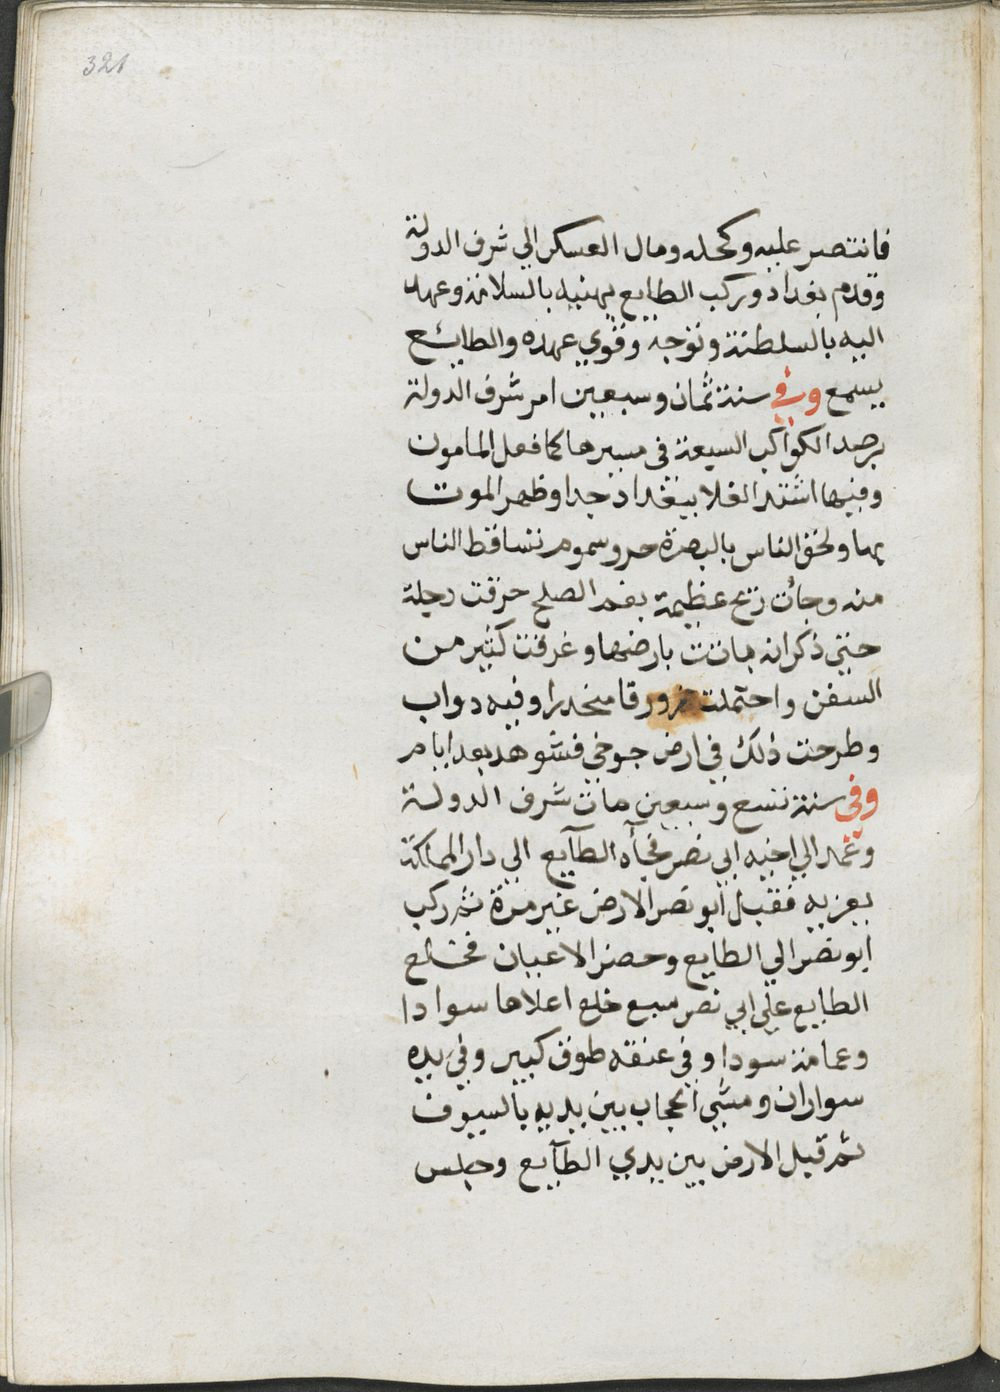 321
فانتصر عليه وكحله ومال العسكر الي شرف الدولة
وقدم بغداد وركب الطايع يهنيه بالسلامة وعهد
اليه بالسلطنة وتوجه وقوي عهده والطائع
يسمع وفي سنة ثمان وسبعين امر شرف الدولة
برصد الكواكب السبعة في مسيرها كما فعل المامون
وفيها اشتد الغلا ببغداد جدا وظهر الموت
بها ولحق الناس بالبصرة حر وسموم تتساقط الناس
منه وجأت ريح عظيمة بفم الصلح حرقت دجلة
حتي ذكر انه بانت بارضها وغرقت كثير من
السفن واحتملت زورقا منحدرا وفيه دواب
وطرحت ذلك في ارض جوخي فشوهد بعد ايام
وفي سنة تسع وسبعين مات شرف الدولة
وعهد الي اخيه ابي نصر فجأه الطآيع الي دار المملكة
يعزيه فقبل ابو نصر الارض غير مرة ثم ركب
ابو نصر الي الطايع وحضر الاعيان فخلع
الطايع علي ابي نصر سبع خلع اعلاها سوادا
وعمامة سودا وفي عنقه طوق كبير وفي يده
سواران ومشي الحجاب بين يديه بالسيوف
ثم قبل الارض بين يدي الطآيع وجلس